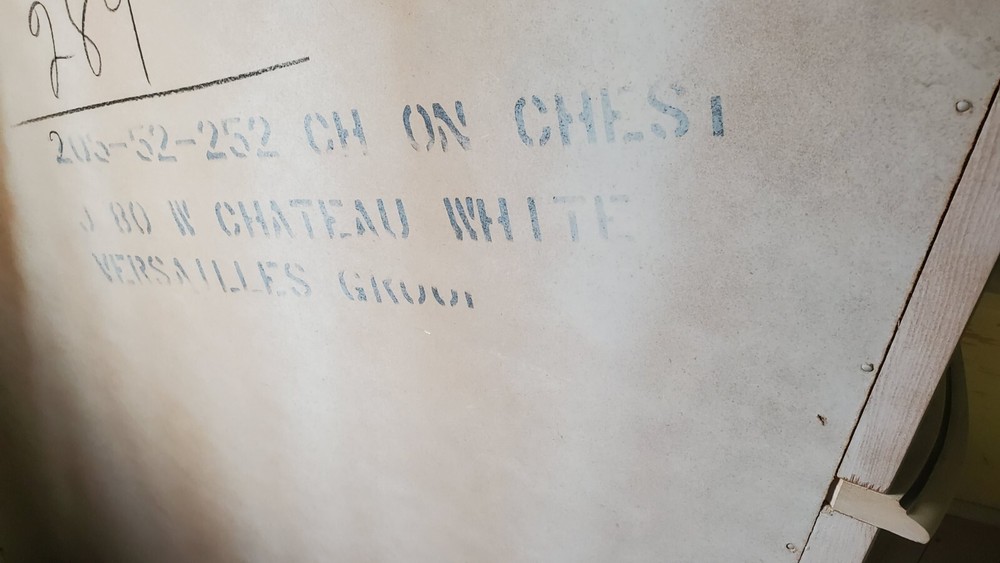 289
205-52-252 CH ON CHEST
80 W CHATEAU WHITE
VERSAILLES GROUP